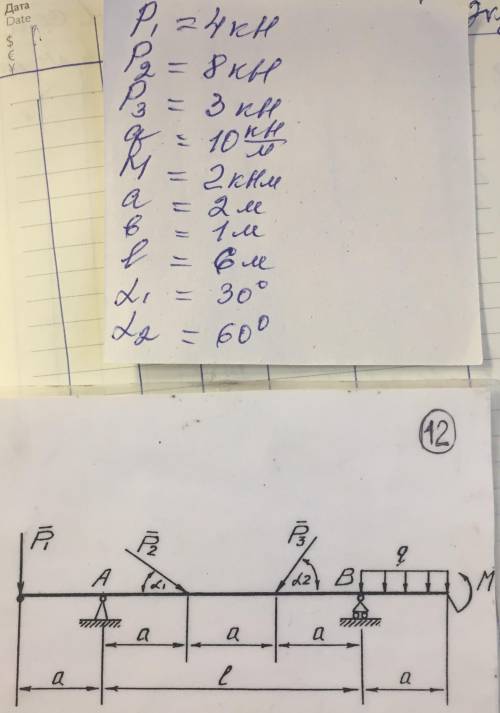 Дата
Date
$
€
¥
P₁ = 4 кН
P₂ = 8 кН
P₃ = 3 кН
q = 10 кН/м
M = 2 кНм
a = 2 м
в = 1 м
l = 6 м
α₁ = 30°
α₂ = 60°
12
P̄₁
A
P̄₂
α₁
P̄₃
α₂
B
q
M
a a a
a l a